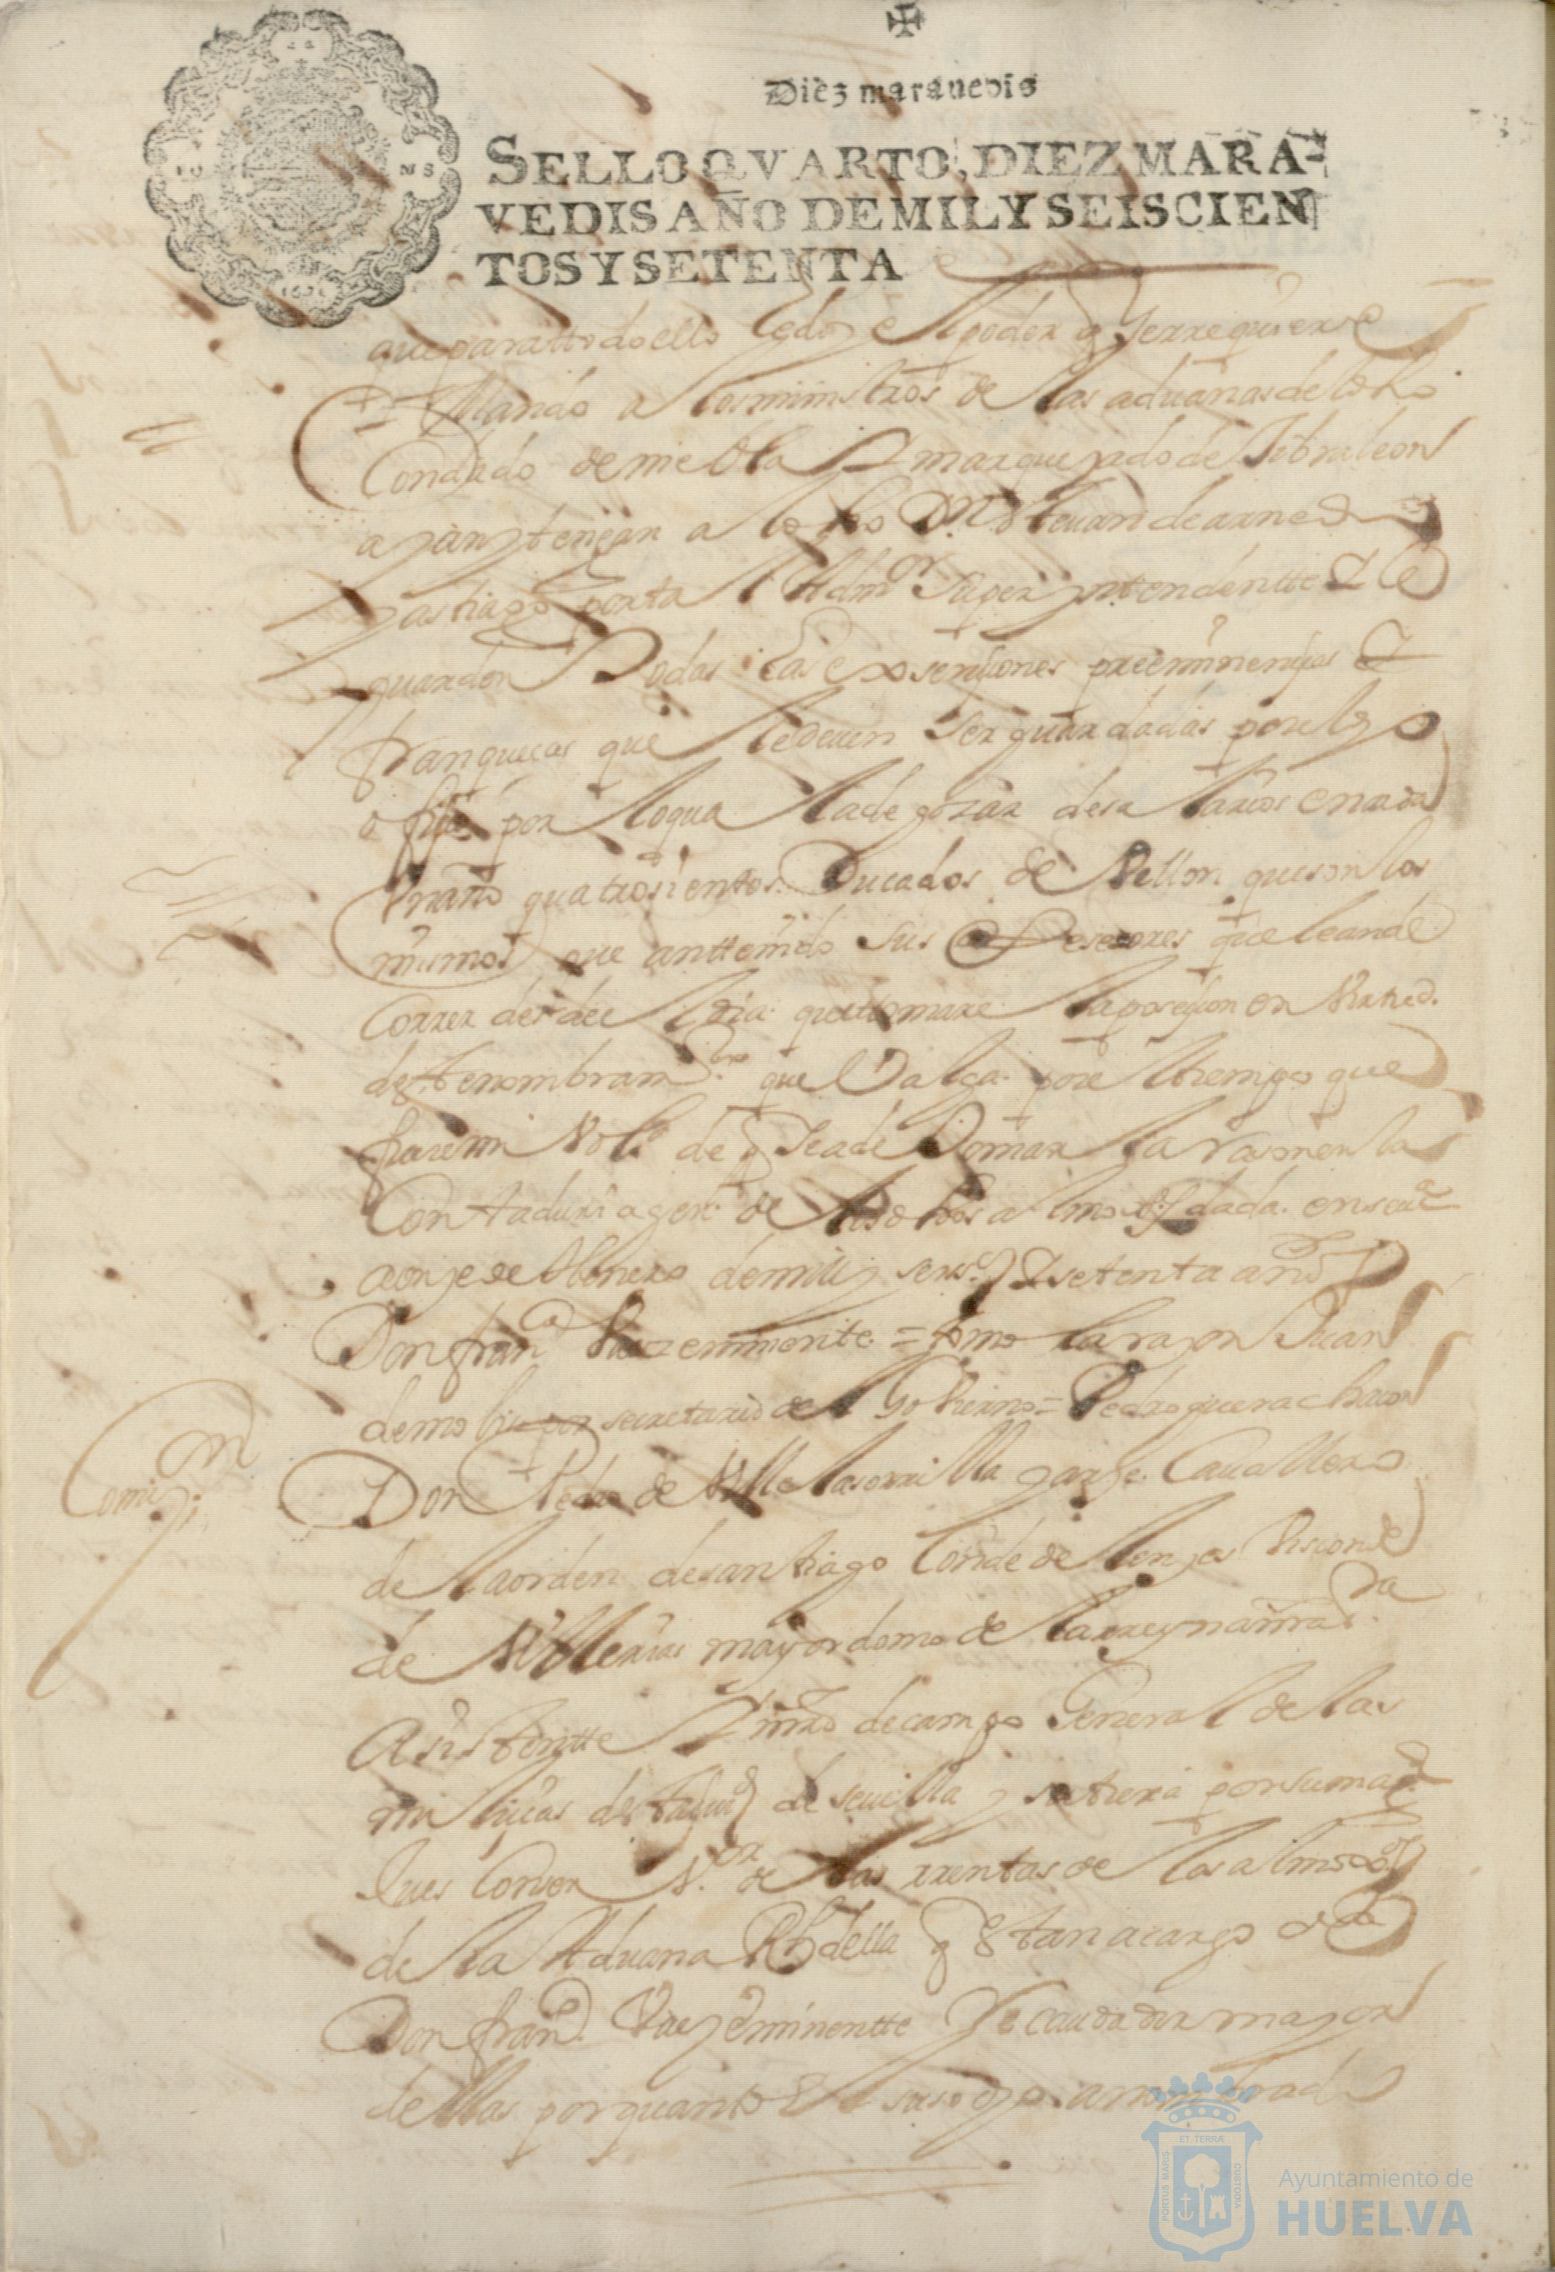 Diez marauedis
SELLO QVARTO, DIEZ MARA-
VEDIS AÑO DE MIL Y SEISCIEN
TOS Y SETENTA
que para ttodo ello le doy el poder q se rrequiere
Y mando a los ministros de las aduanas de el dho
Condado de niebla Y marquesado de Jibraleon
ayan y tengan a el dho Dn esteuan de arnedo
y santiago por tal Admor super yntendentte Y le
guarden Todas las exsenciones preeminencias Y
franqueças que le deuen ser guardadas por el dho
oficio por lo qual a de gozar de salarios en cada
un año quatrosientos Ducados de Vellon que son los
mismos que an ttenido sus antesesores que le an de
Correr desde el dia que ttomare la posesion en Virtud
deste nombram.to que Valga por el tiempo que
fuere mi Vol.d de q se a de Tomar la rason en la
Contaduria gen.l de los dhos almoxfdgos dada en seu.a
a onze de Henero de mill y seis.os Y setenta años
Don fran.co Baez eminente = tomo la rason Juan
de mo secretario del Gobierno = Pedro guerachacon
Comi.on
Don Pedro de Villela çorrilla y arze Cauallero
de la orden de santiago Conde de lençes Visconde
de Villerias mayordomo de la rreyna nra s.ra
Asistentte Y mro de campo General de las
milicias desta ciud de seuilla y su tierra por su mag.d
Jues Conseru.or de las rrentas de los almoxfdgos
de la Aduana della q estan a cargo de
Don fran.co Vaez eminentte Recaudador mayor
dellas por quanto el suso dho a nombrado
PORTUS MARIS ET TERRÆ CUSTODIA
Ayuntamiento de
HUELVA